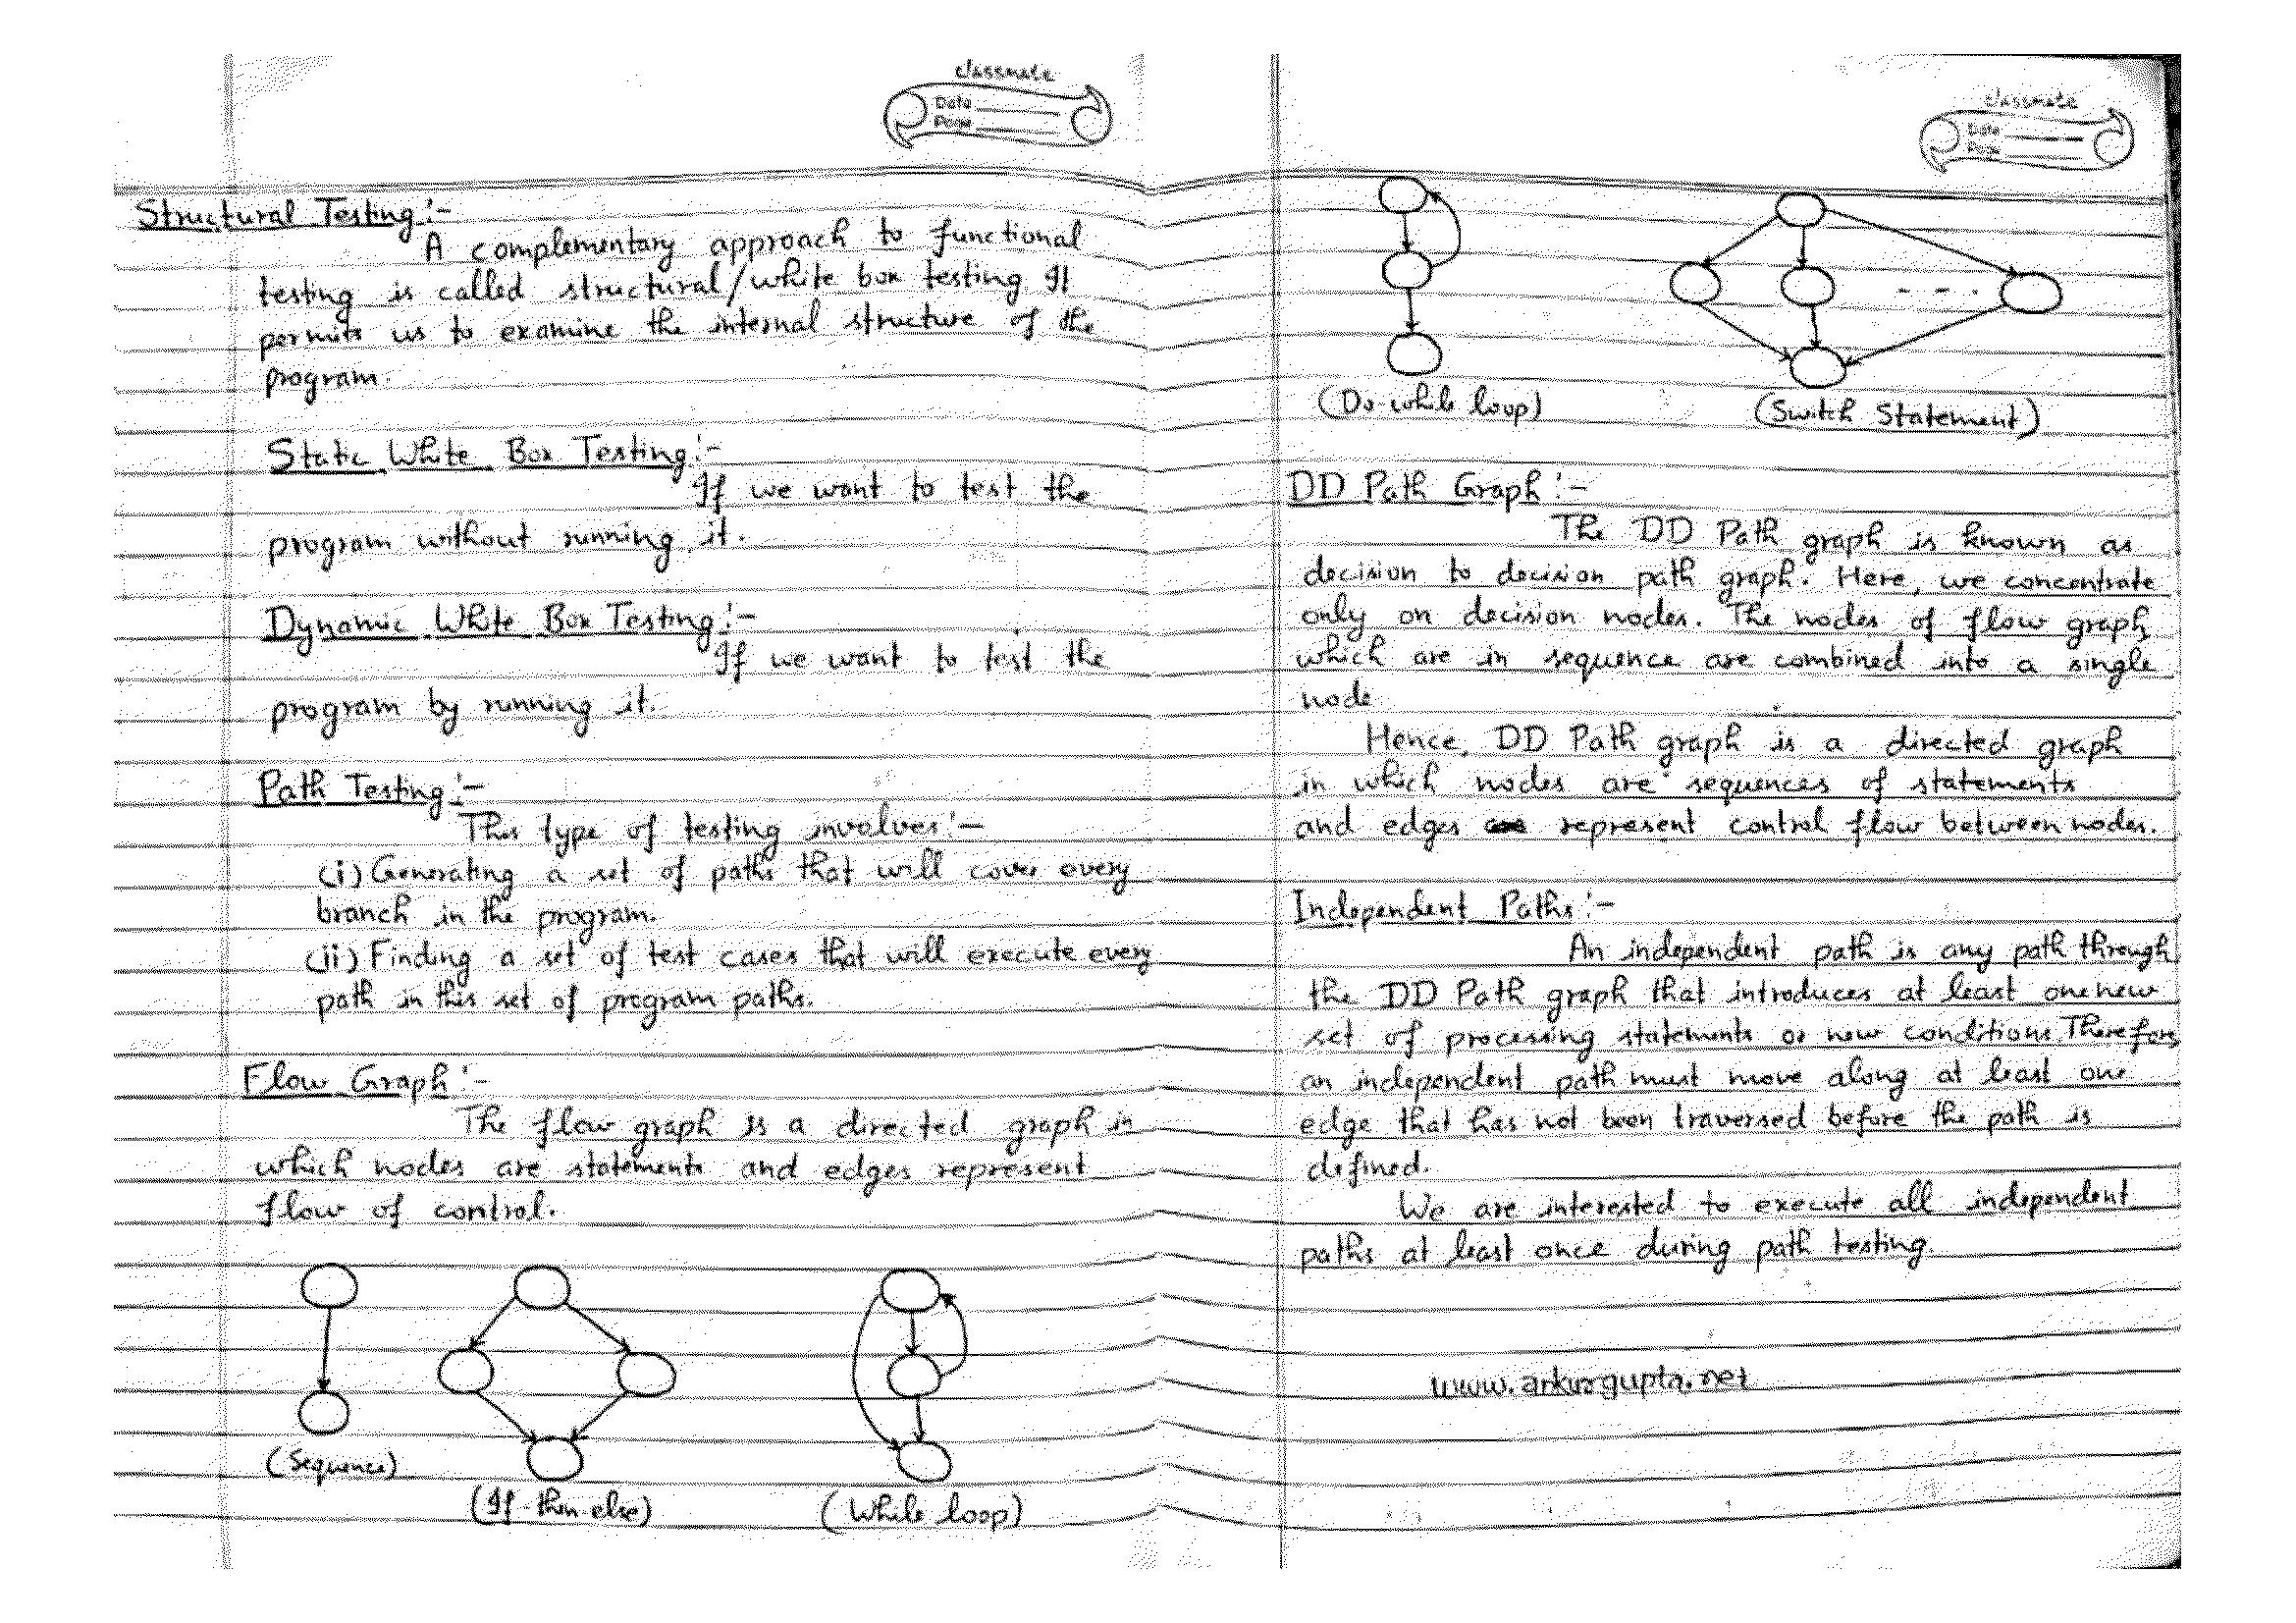 classmate
Date
Page
Structural Testing:-
A complementary approach to functional
testing is called structural/white box testing. It
permits us to examine the internal structure of the
program.
Static White Box Testing:-
If we want to test the
program without running it.
Dynamic White Box Testing:-
If we want to test the
program by running it.
Path Testing:-
This type of testing involves:-
(i) Generating a set of paths that will cover every
branch in the program.
(ii) Finding a set of test cases that will execute every
path in this set of program paths.
Flow Graph:-
The flow graph is a directed graph in
which nodes are statements and edges represent
flow of control.
(Sequence)
(If-then-else)
(While loop)
classmate
Date
Page
(Do-while loop)
(Switch Statement)
DD Path Graph:-
The DD Path graph is known as
decision to decision path graph. Here, we concentrate
only on decision nodes. The nodes of flow graph
which are in sequence are combined into a single
node.
Hence, DD Path graph is a directed graph
in which nodes are sequences of statements
and edges represent control flow between nodes.
Independent Paths:-
An independent path is any path through
the DD Path graph that introduces at least one new
set of processing statements or new conditions. Therefore,
an independent path must move along at least one
edge that has not been traversed before the path is
defined.
We are interested to execute all independent
paths at least once during path testing.
www.ankurgupta.net